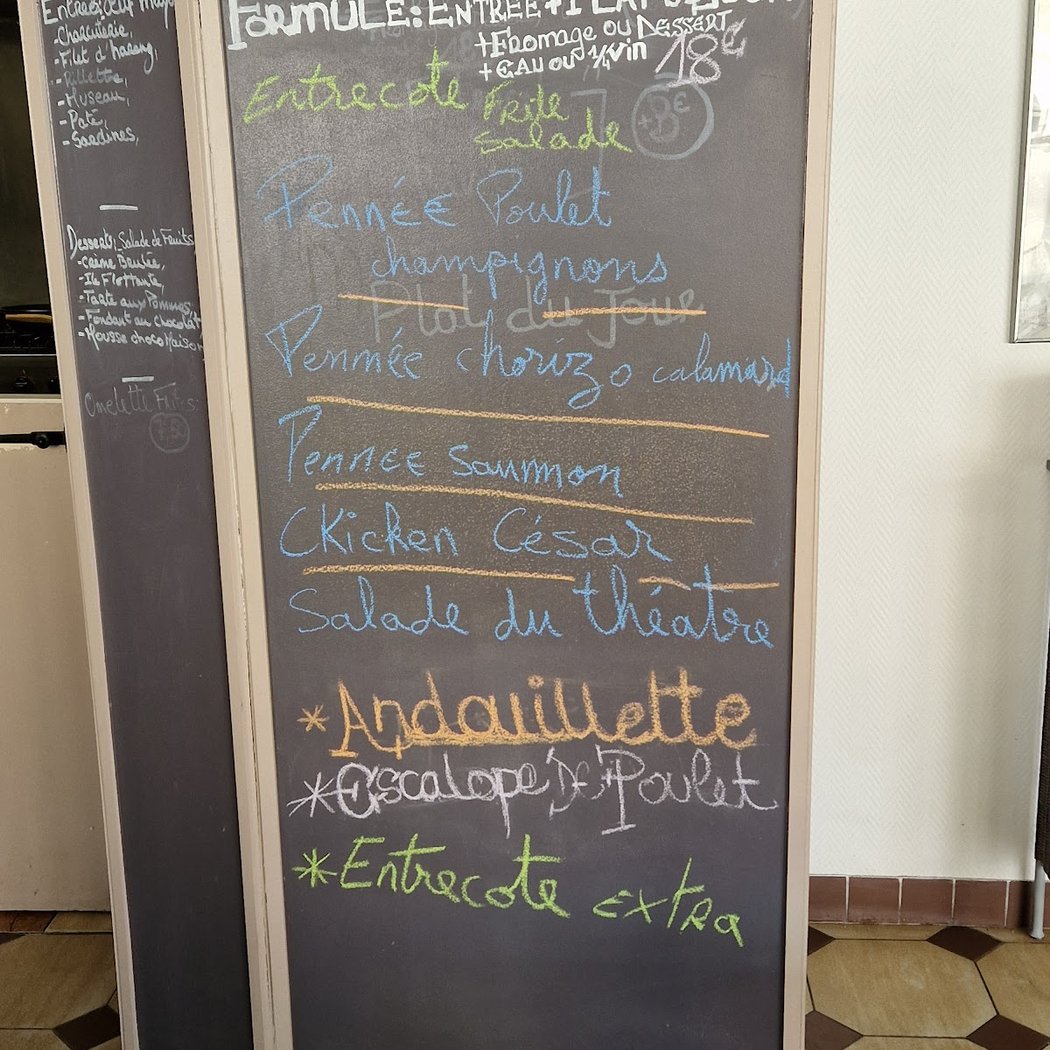 Entrées: Oeuf Mayo
- Charcuterie,
- Filet d'hareng,
- Rillette,
- Museau,
- Paté,
- Sardines,
Desserts: Salade de Fruits
- Crème Brulée,
- Ile Flottante,
- Tarte aux Pommes,
- Fondant au chocolat
- Mousse choco Maison
Omelette Frites
FORMULE: ENTREE + PLAT DU JOUR
+ FROMAGE OU DESSERT
+ EAU OU 1/4 vin 18€
Entrecote Frite
Salade
Pennée Poulet
champignons
Plat du Jour
Pennée chorizo calamard
Pennee saumon
CKicken César
Salade du théatre
* Andouillette
* Escalope DE Poulet
* Entrecote EXTRA